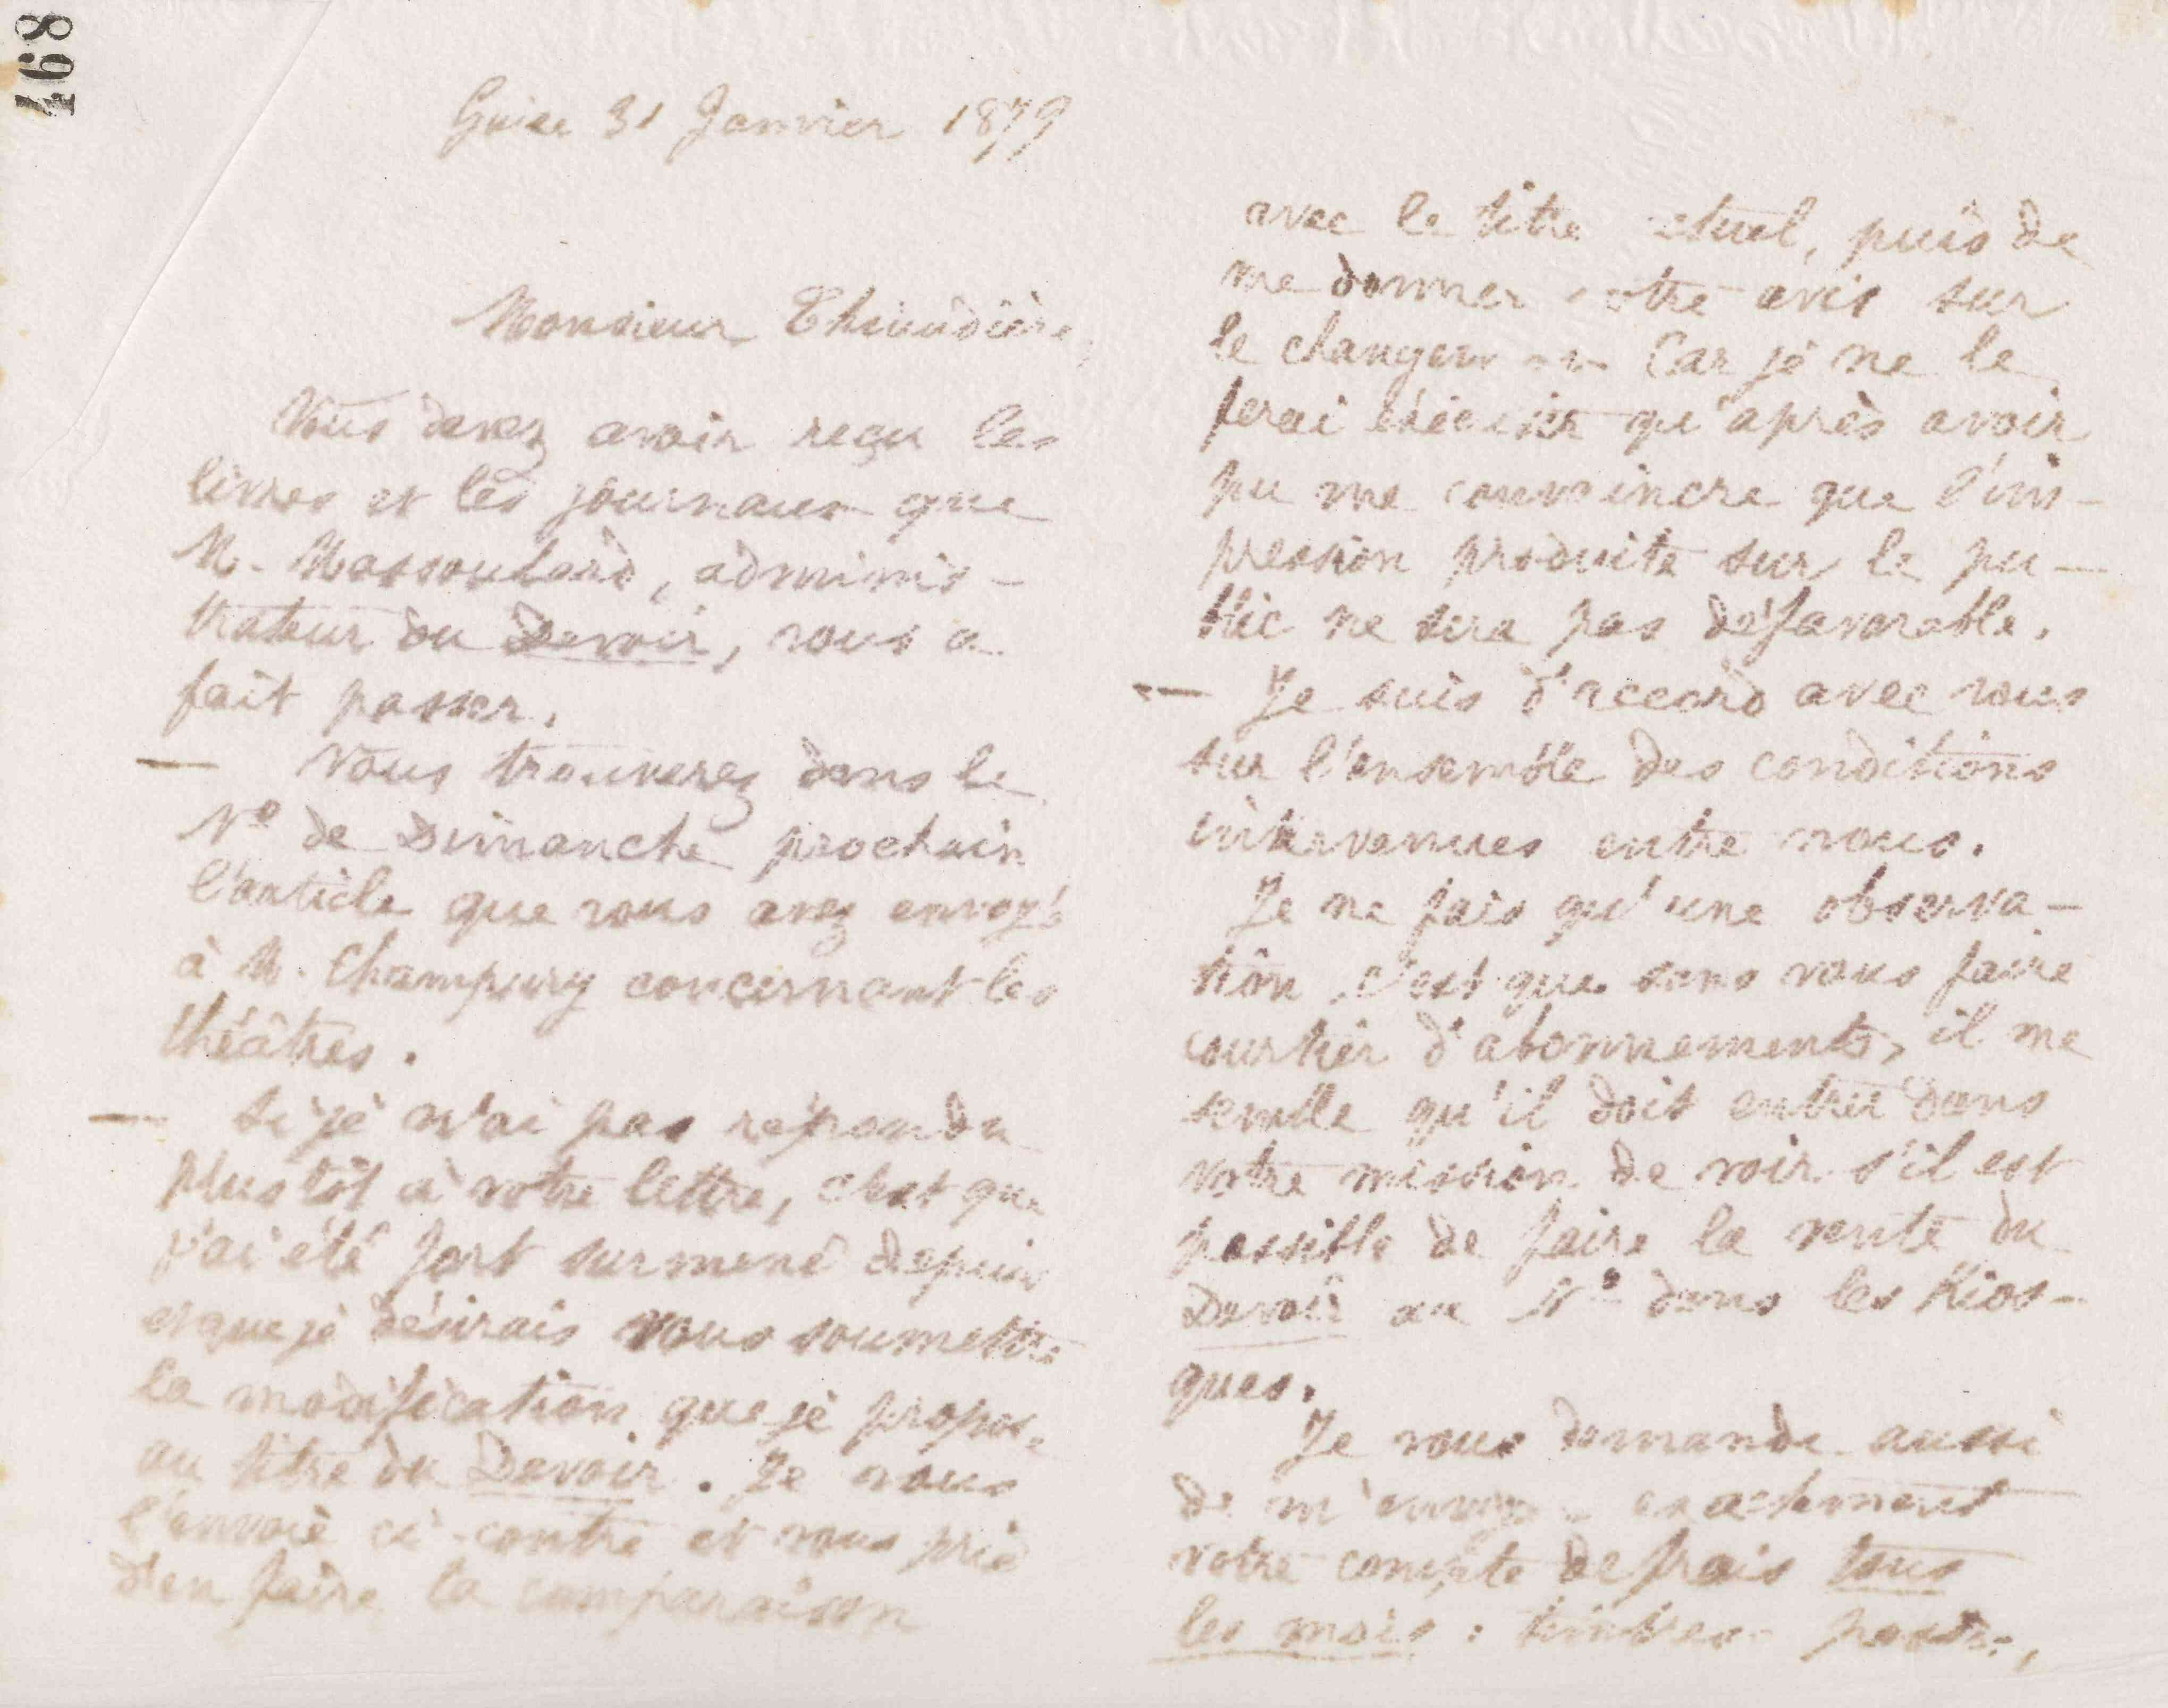 468
Guise 31 Janvier 1879
Monsieur
Vous devez avoir reçu les
livres et les journaux que
M. Massoulard, adminis-
trateur du Devoir, vous a
fait passer.
— Vous trouverez dans le
No de Dimanche prochain
l'article que vous avez envoyé
à M. Champury concernant les
théâtres.
— Si je n'ai pas répondu
plus tôt à votre lettre, c'est que
j'ai été fort surmené depuis
et que je désirais vous soumettre
la modification que je propose
au titre du Devoir. Je vous
l'envoie ci-contre et vous prie
d'en faire la comparaison
avec le titre actuel, puis de
me donner votre avis sur
le changement Car je ne le
ferai exécuter qu'après avoir
pu me convaincre que l'im-
pression produite sur le pu-
blic ne sera pas défavorable.
— Je suis d'accord avec vous
sur l'ensemble des conditions
intervenues entre nous.
Je ne fais qu'une observa-
tion, c'est que sans vous faire
courtier d'abonnements, il me
semble qu'il doit entrer dans
votre mission de voir s'il est
possible de faire la vente du
Devoir au No dans les Kios-
ques.
Je vous demande aussi
de m'envoyer exactement
votre compte de frais tous
les mois : timbres poste,